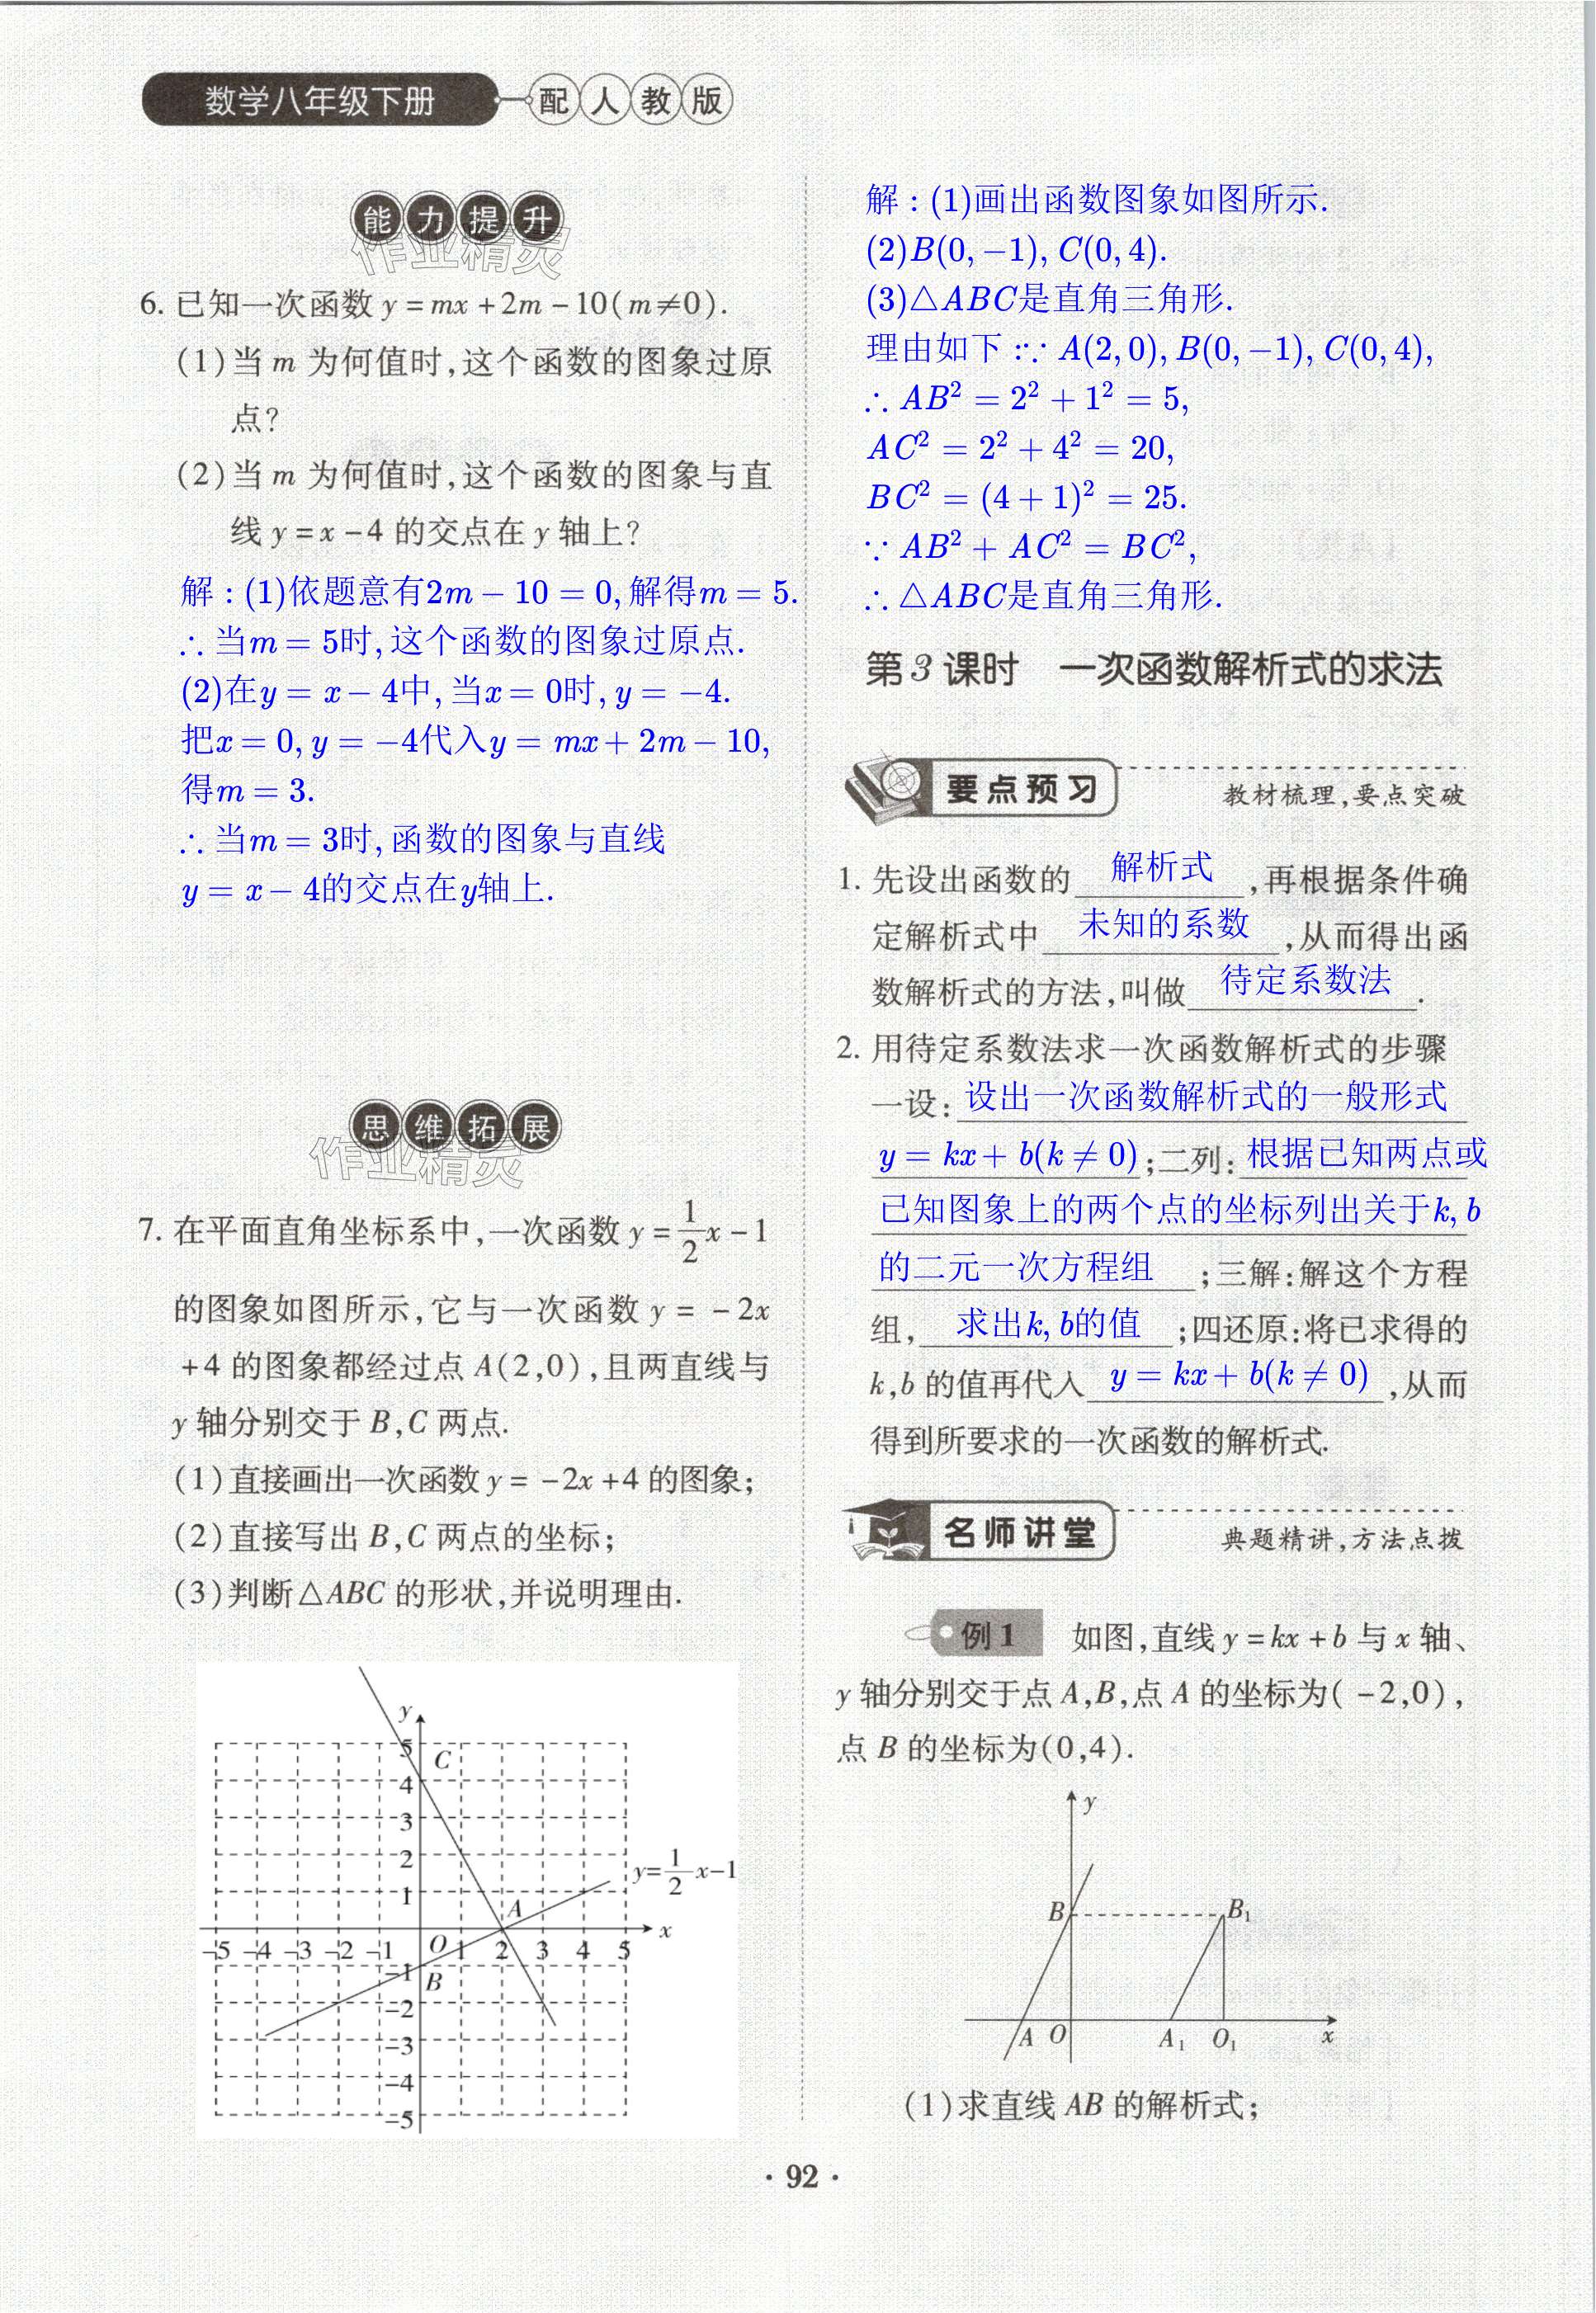 数学八年级下册 配人教版
能力提升
作业精灵
6. 已知一次函数 y = mx + 2m - 10(m≠0).
(1)当 m 为何值时,这个函数的图象过原
点?
(2)当 m 为何值时,这个函数的图象与直
线 y = x - 4 的交点在 y 轴上?
解:(1)依题意有2m - 10 = 0,解得m = 5.
∴当m = 5时,这个函数的图象过原点.
(2)在y = x - 4中,当x = 0时,y = -4.
把x = 0, y = -4代入y = mx + 2m - 10,
得m = 3.
∴当m = 3时,函数的图象与直线
y = x - 4的交点在y轴上.
思维拓展
作业精灵
7. 在平面直角坐标系中,一次函数 y = 1/2 x - 1
的图象如图所示,它与一次函数 y = -2x
+4 的图象都经过点 A(2,0),且两直线与
y 轴分别交于 B,C 两点.
(1)直接画出一次函数 y = -2x + 4 的图象;
(2)直接写出 B,C 两点的坐标;
(3)判断△ABC 的形状,并说明理由.
y
5
C
4
3
2
1
y=1/2 x-1
A
x
-5 -4 -3 -2 -1 O 1 2 3 4 5
-1 B
-2
-3
-4
-5
解:(1)画出函数图象如图所示.
(2)B(0, -1), C(0, 4).
(3)△ABC是直角三角形.
理由如下:∵ A(2, 0), B(0, -1), C(0, 4),
∴ AB² = 2² + 1² = 5,
AC² = 2² + 4² = 20,
BC² = (4 + 1)² = 25.
∵ AB² + AC² = BC²,
∴ △ABC是直角三角形.
第3课时 一次函数解析式的求法
要点预习 教材梳理,要点突破
1. 先设出函数的 解析式 ,再根据条件确
定解析式中 未知的系数 ,从而得出函
数解析式的方法,叫做 待定系数法 .
2. 用待定系数法求一次函数解析式的步骤
一设: 设出一次函数解析式的一般形式
y = kx + b(k ≠ 0) ;二列: 根据已知两点或
已知图象上的两个点的坐标列出关于k, b
的二元一次方程组 ;三解:解这个方程
组, 求出k, b的值 ;四还原:将已求得的
k,b 的值再代入 y = kx + b(k ≠ 0) ,从而
得到所要求的一次函数的解析式.
名师讲堂 典题精讲,方法点拨
例1 如图,直线 y = kx + b 与 x 轴、
y 轴分别交于点 A,B,点 A 的坐标为( -2,0),
点 B 的坐标为(0,4).
y
B B₁
A O A₁ O₁ x
(1)求直线 AB 的解析式;
· 92 ·